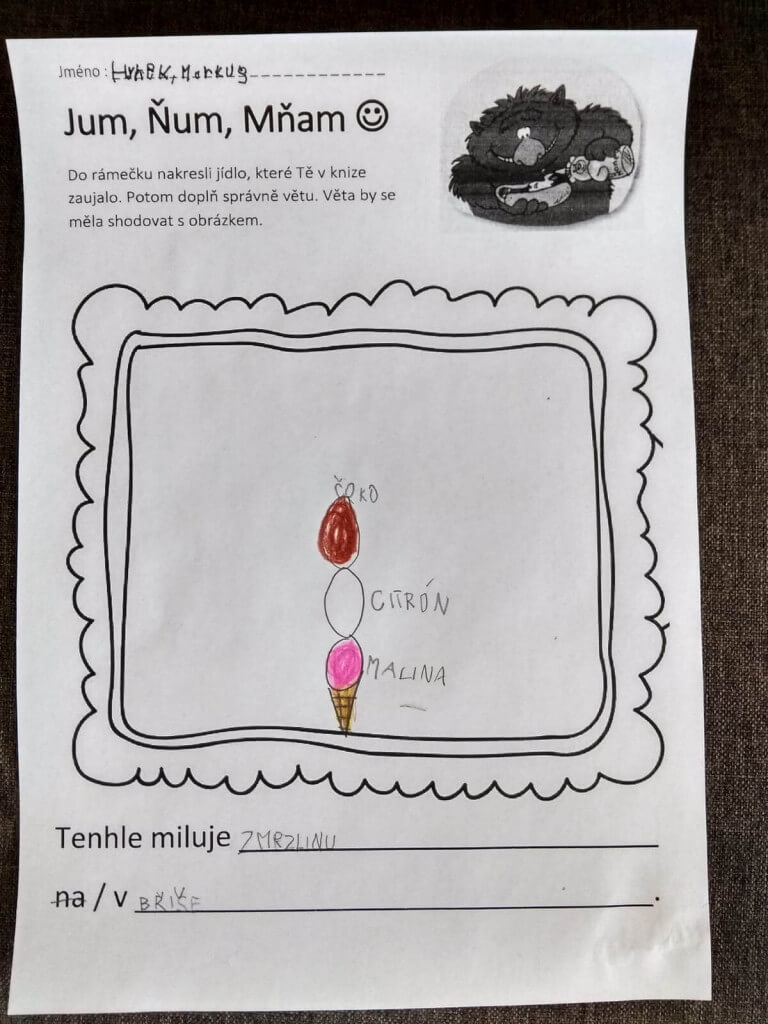 Jméno : Markus
Jum, Ňum, Mňam ☺
Do rámečku nakresli jídlo, které Tě v knize
zaujalo. Potom doplň správně větu. Věta by se
měla shodovat s obrázkem.
ČOKO
CITRÓN
MALINA
Tenhle miluje ZMRZLINU
na / v BŘIŠE.